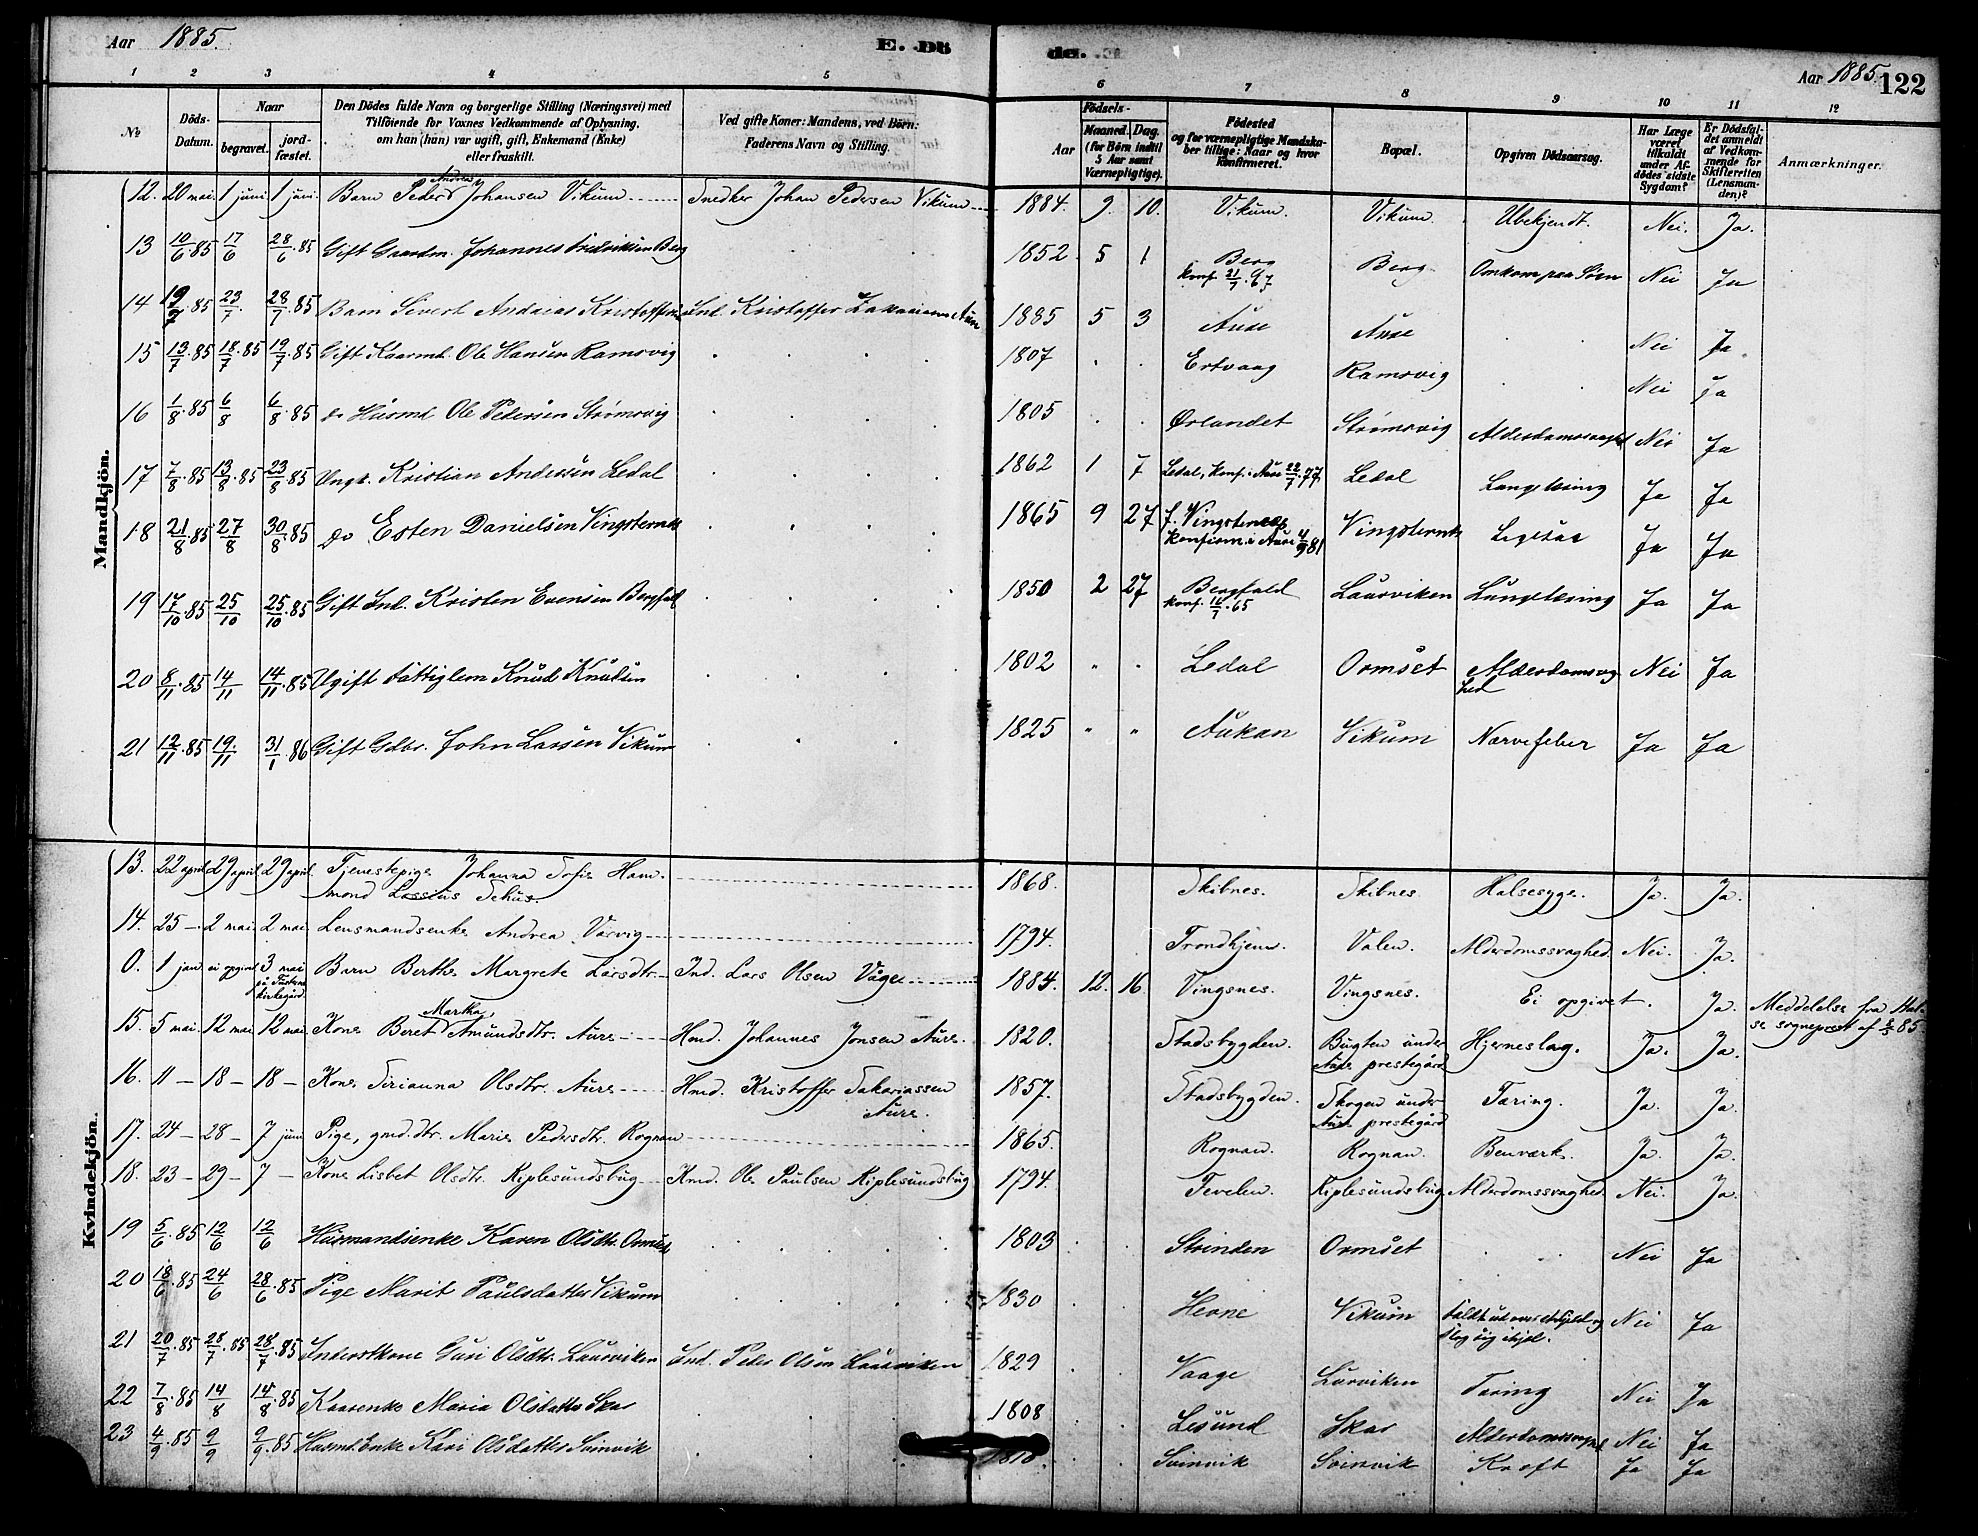 Aar 1885. E. Dö de. Aar 1885. 122
1 2 3 4 5 6 7 8 9 10 11 12
No
Döds-Datum.
Naar
begravet.
jord-fæstet.
Den Dödes fulde Navn og borgerlige Stilling (Næringsvei) med
Tilföiende for Voxnes Vedkommende af Oplysning,
om han (hun) var ugift, gift, Enkemand (Enke)
eller fraskilt.
Ved gifte Koner: Mandens, ved Börn:
Faderens Navn og Stilling.
Födsels-
Aar
Maaned. Dag.
(for Börn indtil
5 Aar samt
Værnepligtige).
Födested
og for værnepligtige Mandska-
ber tillige: Naar og hvor
konfirmeret.
Bopæl.
Opgiven Dödsaarsag.
Har Læge
været
tilkaldt
under Af-
dödes sidste
Sygdom?
Er Dödsfal-
det anmeldt
af Vedkom-
mende for
Skifteretten
(Lensman-
den)?
Anmærkninger.
Mandkjön.
12. 20 mai. 1 juni 1 juni. Barn Peder Andreas Johansen Vikum Snedker Johan Pedersen Vikum 1884. 9. 10. Vikum. Vikum. Ubekjendt. Nei. Ja.
13 10/6.85 17/6 28/6.85 Gift Gaardm. Johannes Fredriksen Berg 1852 5 1 Berg konf. 21/7.67 Berg Omkom paa Søen Nei Ja
14 19/7.85 23/7. 28/7.85 Barn Sivert Andreas Kristoffersen Ind. Kristoffer Zakariassen Aure 1885 5 3 Aure Aure Nei Ja
15 13/7.85 18/7.85 19/7.85 Gift Kaarmd. Ole Hansen Ramsvig 1807 Ertvaag Ramsvig Nei Ja
16 1/8.85 6/8 6/8.85 do Husmd Ole Pedersen Strömsvig 1805 Ørlandet Strömsvig Alderdomssvaghed Nei Ja
17 7/8.85 13/8.85 23/8.85 Ungk. Kristian Andersen Ledal 1862 1 7 Ledal, konf. i Aure 22/7.77 Ledal Lungetæring Ja Ja
18 21/8.85 27/8 30/8.85 do Esten Danielsen Vingsternes 1865 9 27 f. Vingsternes konfirm. i Aure 4/9 81 Vingsternes Ja Ja
19 17/10.85 25/10 25/10.85 Gift Ind. Kristen Evensen Bergfald 1850 2 27 Bergfald konf. 16/7.65 Laurviken Lungetæring Ja Ja
20 8/11.85 14/11 14/11.85 Ugift Fattiglem Knud Knudsen 1802 " " Ledal Ormset Alderdomsvaghed Nei Ja
21 12/11.85 19/11 31/1 86 Gift Gdbr. John Larsen Vikum 1825 " " Aukan Vikum Nervefeber Ja Ja
Kvindekjön.
13. 22 april 29 april 29 april Tjenestepige Johanna Sofie Hammond Lossius Sehus. 1868. Skibnes. Skibnes. Halsesyge. Ja. Ja.
14. 25 – 2 mai 2 mai Lensmandsenke Andrea Varvig 1794. Trondhjem. Valen. Alderdomssvaghed. Nei. Ja.
0. 1 jan ei opgivet 3 mai på Tustern kirkegård. Barn Berthe Margrete Larsdtr. Ind. Lars Olsen Våge 1884. 12. 16. Vingsnes. Vingsnes. Ei opgivet. Ja. Meddelelse fra Halse sogneprest af 2/5 85.
15. 5 mai. 12 mai 12 mai Kone Beret Martha Amundsdtr. Aure Hmd. Johannes Jonsen Aure. 1820. Stadsbygden. Bugten under Aure prestegård Hjerneslag. Ja. Ja.
16. 11 – 18 – 18 – Kone Sirianna Olsdtr. Aure Hmd. Kristoffer Sakariassen Aure. 1857. Stadsbygden. Skogen under Aure prestegård Tæring. Ja. Ja.
17. 24 – 28 – 7 juni Pige, gmd.dtr. Marie Pedersdtr. Rognan 1865. Rognan. Rognan. Benværk. Ja. Ja.
18. 23 – 29 – 7 – Kone Lisbet Olsdtr. Kiplesundsbug Kmd. Ole Paulsen Kiplesundsbug 1794. Tevelen. Kiplesundsbug Alderdomssvaghed. Nei. Ja.
19 5/6.85 12/6 12/6 Husmandsenke Karen Olsdtr. Ormset 1803 Strinden Ormset Nei Ja
20 18/6.85 24/6 28/6.85 Pige Marit Paulsdatter Vikum 1830 Hevne Vikum Faldt ud over et og slog sig ihjel. Nei Ja
21 20/7.85 28/7.85 28/7.85 Inderstkone Guri Olsdtr. Laurviken Ind. Peder Olsen Laurviken 1829 Vaage Lurviken Tæring Nei Ja
22 7/8.85 14/8 14/8.85 Kaarenke Maria Olsdatter Skar 1808 Lesund Skar Alderdomssvaghed Nei Ja
23 4/9.85 9/9 9/9.85 Husmdsenke Kari Olsdatter Svinvik 1818. Svinvik Svinvik Kræft Ja Ja